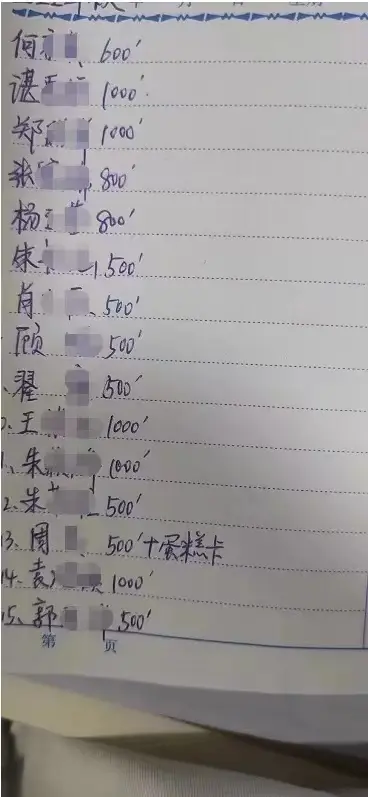 何 600'
谌 1000'
郑 1000'
张 800'
杨 800'
朱 500'
肖 500'
顾 500'
翟 500'
王 1000'
朱 1000'
2、朱 500'
13、周 500'+蛋糕卡
14、袁 1000'
15、郭 500'
第 页